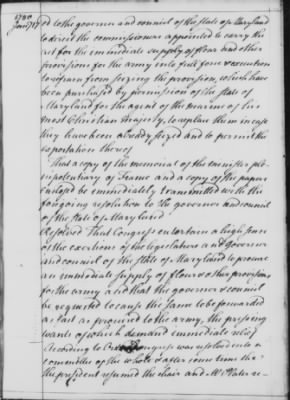 1780
Jany 17
ed to the governor and council of the state of Maryland
to direct the commissioners appointed to carry the
act for the immediate supply of flour and other
provisions for the army into full force & execution
to refrain from seizing the provision, which have
been purchased by permission of the state of
Maryland for the agent of the marine of his
most Christian Majesty, to replace them in case
they have been already seized and to permit the
exportation thereof
That a copy of the memorial of the minister ple-
nipotentiary of France and a copy of the paper
enclosed be immediately transmitted with the
foregoing resolution to the governor and council
of the state of Maryland
Resolved That Congress entertain a high sense
of the exertions of the legislature and governor
and council of the state of Maryland to procure
an immediate supply of flour & other provisions
for the army and that the governor & council
be requested to cause the same to be forwarded
as fast as procured to the army, the pressing
wants of which demand immediate relief
According to Order Congress was resolved into a
committee of the whole & after some time the
the president resumed the chair and Mr Plater re-